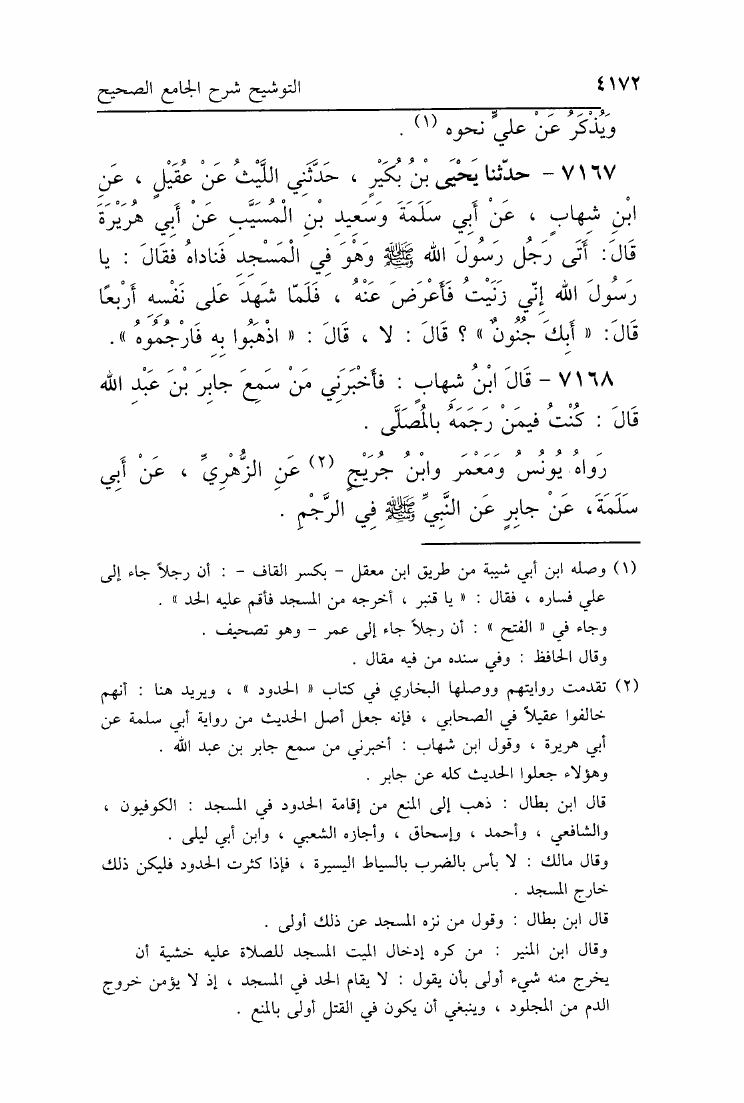 ٤١٧٢ التوشيح شرح الجامع الصحيح
وَيُذْكَرُ عَنْ عليٍّ نحوه (١) .
٧١٦٧ – حدّثنا يَحْيَى بْنُ بُكَيْرٍ ، حَدَّثَنِي اللَّيْثُ عَنْ عُقَيْلٍ ، عَنِ
ابْنِ شِهابٍ ، عَنْ أَبِي سَلَمَةَ وَسَعِيدِ بْنِ الْمُسَيَّبِ عَنْ أَبِي هُرَيْرَةَ
قَالَ: أَتَى رَجُل رَسُولَ الله ﷺ وَهْوَ فِي الْمَسْجِدِ فَناداهُ فقَالَ : يا
رَسُولَ الله إِنِّي زَنَيْتُ فَأَعْرَضَ عَنْهُ ، فَلَمّا شَهِدَ عَلى نَفْسِهِ أَرْبَعًا
قَالَ: « أَبِكَ جُنُونٌ » ؟ قَالَ : لا ، قَالَ : « اذْهَبُوا بِهِ فَارْجُمُوهُ ».
٧١٦٨ – قَالَ ابْنُ شِهاب : فأَخْبَرَنِي مَنْ سَمِعَ جابِرَ بْنَ عَبْدِ الله
قَالَ : كُنْتُ فيمَنْ رَجَمَهُ بالمُصَلَّى .
رَواهُ يُونُسُ وَمَعْمَر وابْنُ جُرَيْجٍ (٢) عَنِ الزُّهْرِيِّ ، عَنْ أَبِي
سَلَمَةَ، عَنْ جابِرٍ عَن النَّبِيِّ ﷺ فِي الرَّجْمِ .
(١) وصله ابن أبي شيبة من طريق ابن معقل – بكسر القاف – : أن رجلاً جاء إلى
علي فساره ، فقال : « يا قنبر ، أخرجه من المسجد فأقم عليه الحد » .
وجاء في « الفتح » : أن رجلاً جاء إلى عمر – وهو تصحيف .
وقال الحافظ : وفي سنده من فيه مقال .
(٢) تقدمت روايتهم ووصلها البخاري في كتاب « الحدود » ، ويريد هنا : أنهم
خالفوا عقيلاً في الصحابي ، فإنه جعل أصل الحديث من رواية أبي سلمة عن
أبي هريرة ، وقول ابن شهاب : أخبرني من سمع جابر بن عبد الله .
وهؤلاء جعلوا الحديث كله عن جابر .
قال ابن بطال : ذهب إلى المنع من إقامة الحدود في المسجد : الكوفيون ،
والشافعي ، وأحمد ، وإسحاق ، وأجازه الشعبي ، وابن أبي ليلى .
وقال مالك : لا بأس بالضرب بالسياط اليسيرة ، فإذا كثرت الحدود فليكن ذلك
خارج المسجد .
قال ابن بطال : وقول من نزه المسجد عن ذلك أولى .
وقال ابن المنير : من كره إدخال الميت المسجد للصلاة عليه خشية أن
يخرج منه شيء أولى بأن يقول : لا يقام الحد في المسجد ، إذ لا يؤمن خروج
الدم من المجلود ، وينبغي أن يكون في القتل أولى بالمنع .